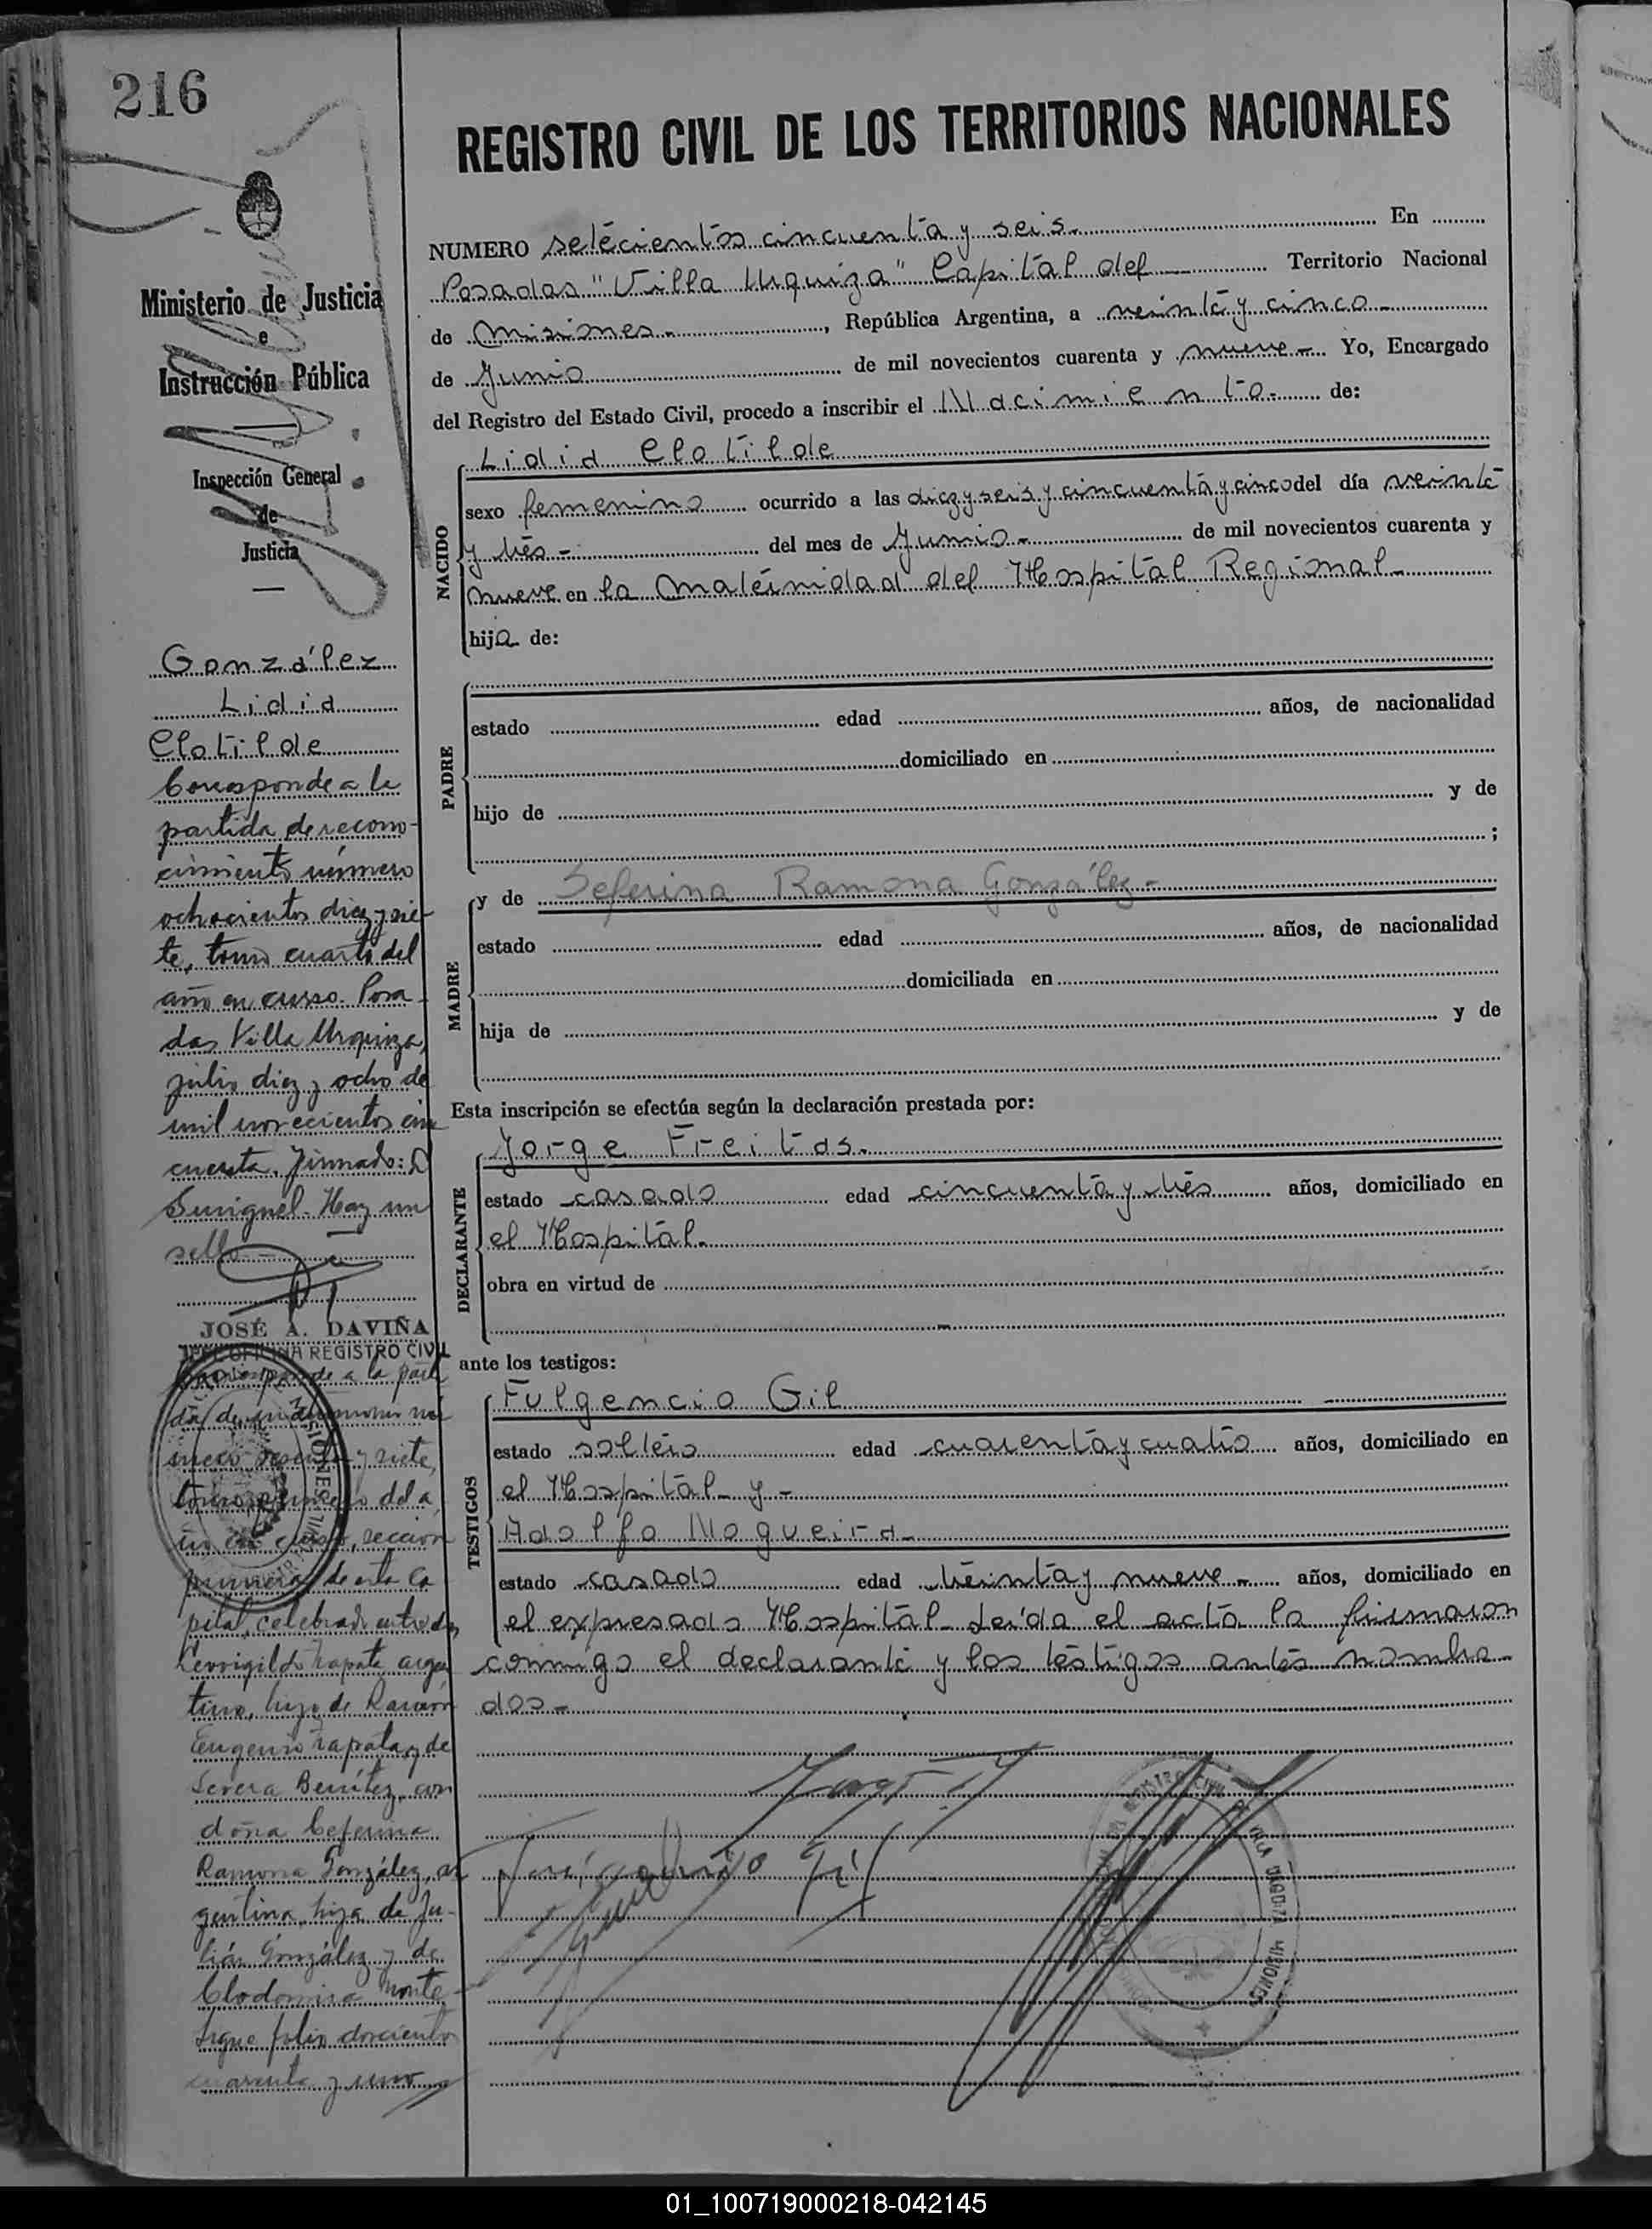 216
REGISTRO CIVIL DE LOS TERRITORIOS NACIONALES
Ministerio de Justicia
e
Instrucción Pública
Inspección General
de
Justicia
González
Lidia
Clotilde
Corresponde a la
partida de recono-
cimiento número
ochocientos diez y sie-
te, tomo cuarto del
año en curso. Posa-
das Villa Urquiza,
julio diez y ocho de
mil novecientos cin
cuenta. Firmado: D
Hay un
sello
JOSÉ A. DAVIÑA
JEFE OFICINA REGISTRO CIVIL
Corresponde a la parti
da de matrimonio nú
mero sesenta y siete,
tomo primero del a
ño en curso, sección
primera de esta Ca
pital, celebrado entre don
Leovigildo Zapata argen
tino, hijo de Ramón
Eugenio Zapata y de
Severa Benítez, con
doña Ceferina
Ramona González, ar
gentina, hija de Ju-
lián González y de
Clodomira Monte
Sigue folio doscientos
cuarenta y uno
NUMERO setecientos cincuenta y seis. En
Posadas "Villa Urquiza" Capital del Territorio Nacional
de Misiones - , República Argentina, a veinte y cinco -
de Junio de mil novecientos cuarenta y nueve - Yo, Encargado
del Registro del Estado Civil, procedo a inscribir el Nacimiento. de:
NACIDO
Lidia Clotilde
sexo femenino ocurrido a las diez y seis y cincuenta y cinco del día veinte
y tres - del mes de Junio - de mil novecientos cuarenta y
nueve en la Maternidad del Hospital Regional -
hija de:
PADRE
estado edad años, de nacionalidad
domiciliado en
hijo de y de
;
MADRE
y de Seferina Ramona González -
estado edad años, de nacionalidad
domiciliada en
hija de y de
Esta inscripción se efectúa según la declaración prestada por:
DECLARANTE
Jorge Freitas.
estado casado edad cincuenta y tres años, domiciliado en
el Hospital.
obra en virtud de
ante los testigos:
TESTIGOS
Fulgencio Gil
estado soltero edad cuarenta y cuatro años, domiciliado en
el Hospital - y -
Adolfo Nogueira -
estado casado edad treinta y nueve - años, domiciliado en
el expresado Hospital - Leída el acta la firmaron
conmigo el declarante y los testigos antes nombra-
dos -
01_100719000218-042145